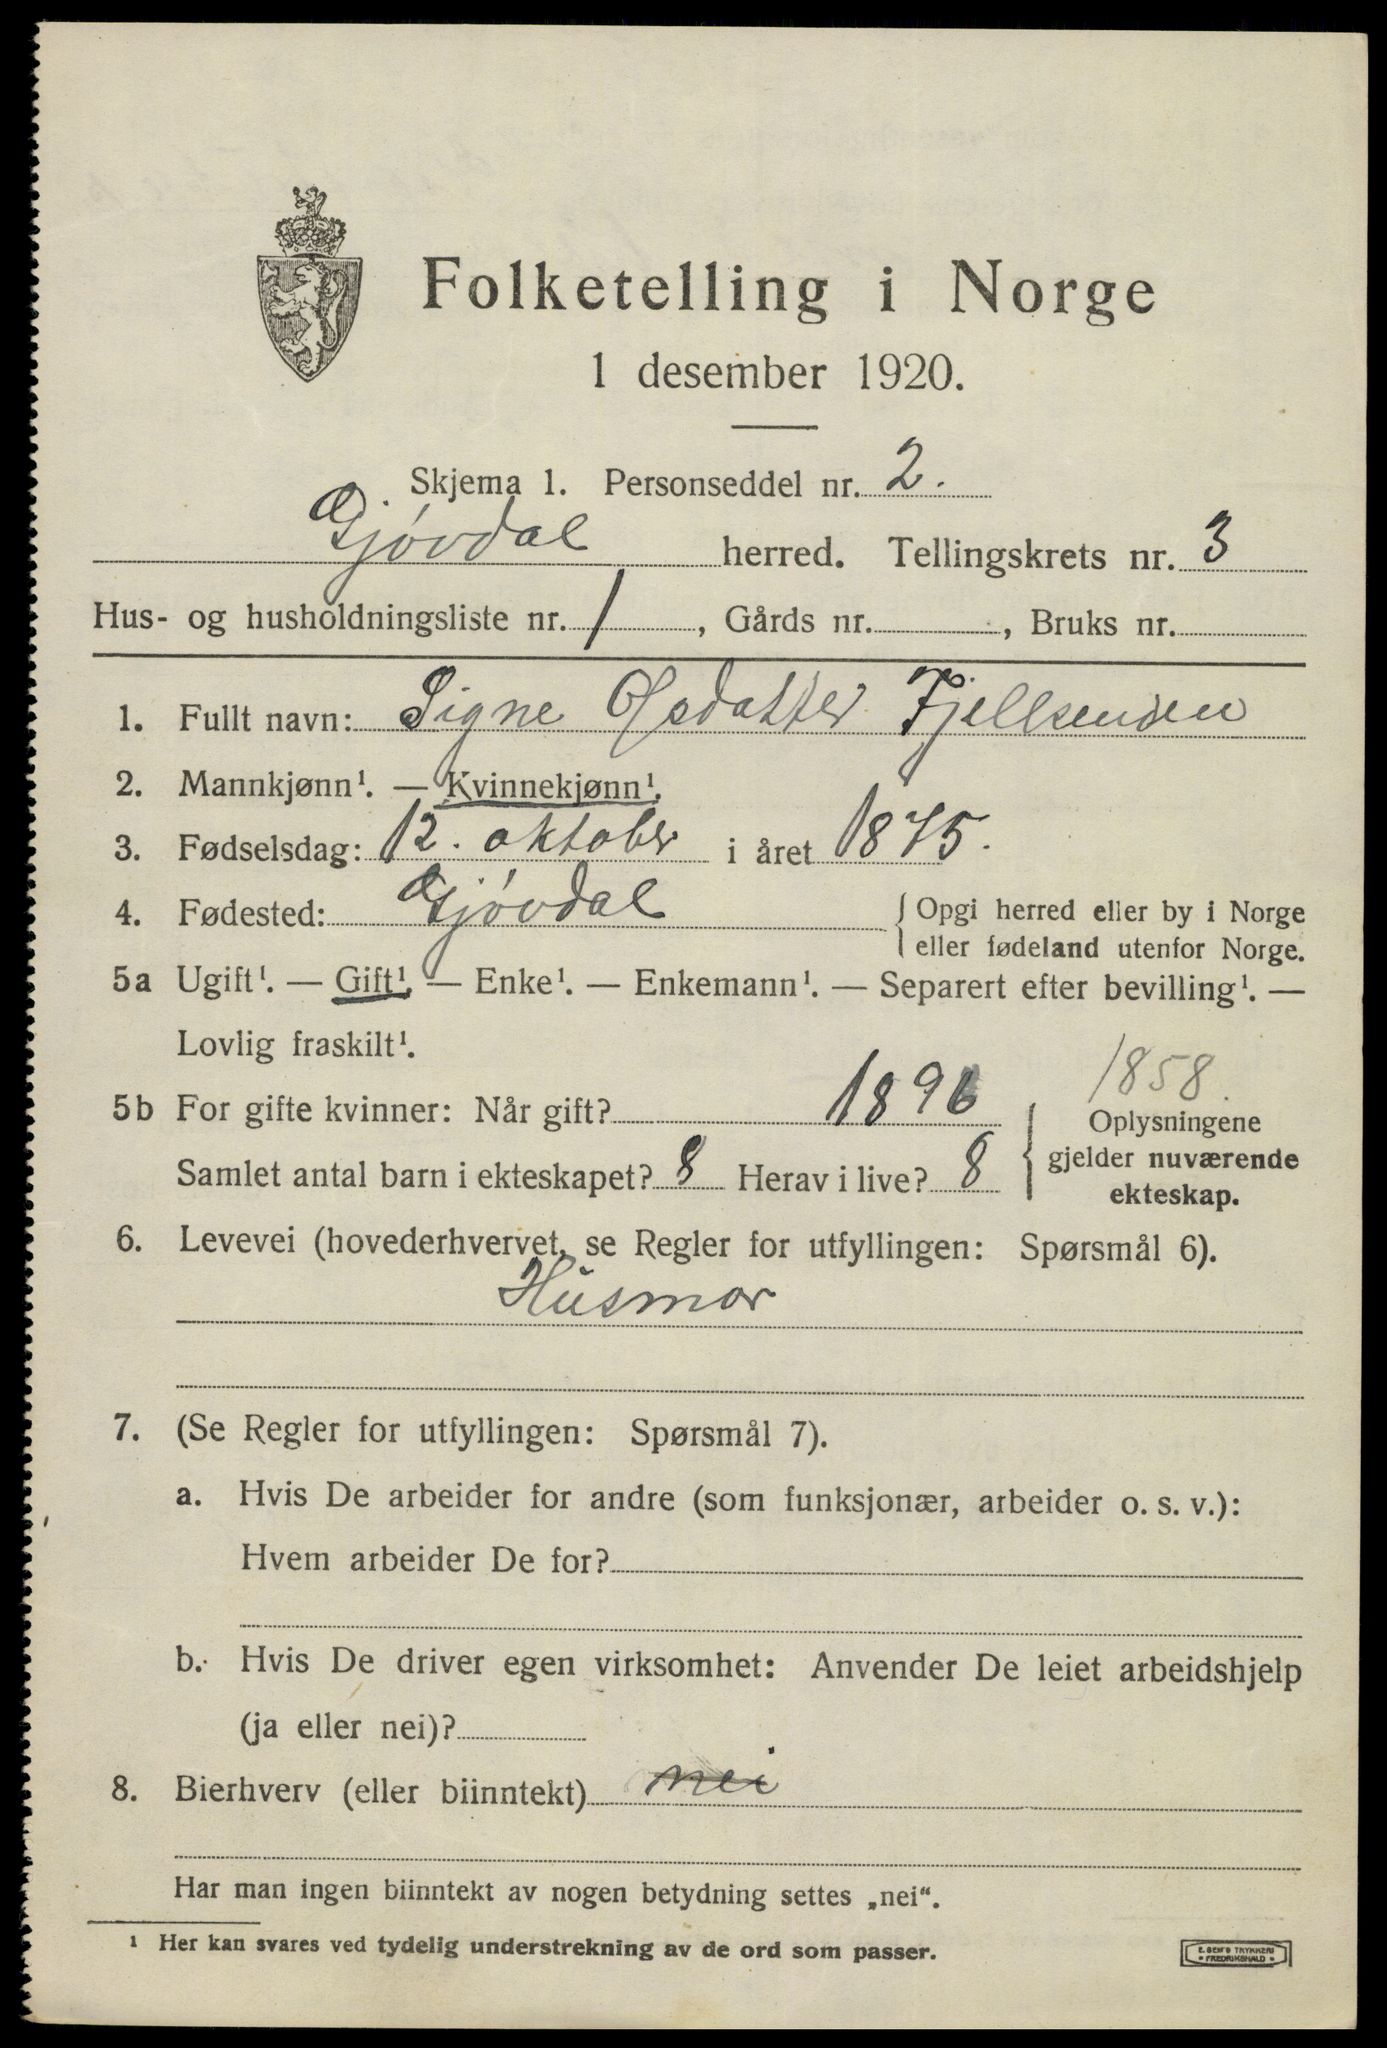 Folketelling i Norge
1 desember 1920.
Skjema 1. Personseddel nr. 2.
Gjövdal herred. Tellingskrets nr. 3
Hus- og husholdningsliste nr. 1, Gårds nr. , Bruks nr.
1. Fullt navn: Signe
2. Mannkjønn¹. — Kvinnekjønn¹.
3. Fødselsdag: 12. oktober i året 1875.
4. Fødested: Gjövdal { Opgi herred eller by i Norge
eller fødeland utenfor Norge.
5a Ugift¹. — Gift¹. — Enke¹. — Enkemann¹. — Separert efter bevilling¹. —
Lovlig fraskilt¹.
1858.
5b For gifte kvinner: Når gift? 1896 { Oplysningene
gjelder nuværende
Samlet antal barn i ekteskapet? 8 Herav i live? 8
ekteskap.
6. Levevei (hovederhvervet, se Regler for utfyllingen: Spørsmål 6).
Husmor
7. (Se Regler for utfyllingen: Spørsmål 7).
a. Hvis De arbeider for andre (som funksjonær, arbeider o. s. v.):
Hvem arbeider De for?
b. Hvis De driver egen virksomhet: Anvender De leiet arbeidshjelp
(ja eller nei)?
8. Bierhverv (eller biinntekt) nei
Har man ingen biinntekt av nogen betydning settes „nei“.
¹ Her kan svares ved tydelig understrekning av de ord som passer.